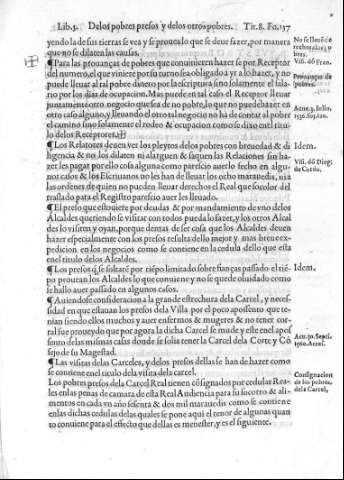 Lib.3. Delos pobres presos y delos otros pobres. Tit.8. Fo.137
yendo la de sus tierras se vea y se prouea lo que se deue fazer, por manera
que no se dilaten las causas.
¶ Para las prouanças de pobres que conuinieren hazer se por Receptor
del numero, el que viniere por su turno sea obligado a yr a lo hazer, y no
puede lleuar al tal pobre dinero por la escriptura sino solamente el sala-
rio por los dias de ocupacion. Mas puede en tal caso el Receptor lleuar
juntamente otro negocio que sea de no pobre, lo que no puede hazer en
otro caso alguno, y lleuando el otro tal negocio no ha de contar al pobre
el camino sino solamente el rodeo & ocupacion como se dixo en el titu-
lo delos Receptores.
¶ Los Relatores deuen ver los pleytos delos pobres con breuedad & di
ligencia & no los dilaten ni alarguen & saquen las Relaciones sin ha-
zer les pagar por ello cosa alguna como parescio auerlo fecho en algu-
nos casos & los Escriuanos no les han de lleuar los ocho marauedis, ni a
las ordenes de quien no pueden lleuar derechos el Real que so color del
traslado para el Registro parescio auer les lleuado.
¶ El preso que estouiere por deudas & por mandamiento de vno delos
Alcaldes queriendo se visitar con todos pueda lo fazer, y los otros Alcal
des lo visiten y oyan, porque demas de ser cosa que los Alcaldes deuen
hazer especialmente con los presos resulta dello mejor y mas breue ex-
pedicion en los negocios como se contiene en la cedula dello que esta
en el titulo delos Alcaldes.
¶ Los presos q̃ se soltarẽ por tiẽpo limitado sobre fianças passado el tiẽ-
po prouean los Alcaldes lo que conuiene y no se quede oluidado como
le hallo auer passado en algunos casos.
¶ Auiendose consideracion a la grande estrechura dela Carcel, y neces-
sidad en que estauan los presos dela Villa por el poco aposento que te-
nian siendo ellos muchos y auer enfermos & mugeres & no tener cor-
ral fue proueydo que por agora la dicha Carcel se mude y este en el apos
sento delas mismas casas donde se solia tener la Carcel dela Corte y Cõ
sejo de su Magestad.
¶ Las visitas delas Carceles, y delos presos dellas se han de hazer como
se contiene en el titulo dela visita dela carcel.
Los pobres presos dela Carcel Real tienen cõsignados por cedulas Rea-
les en las penas de camara de esta Real Audiencia para su socorro & ali-
mentos en cada vn año sesenta & dos mil marauedis como se contiene
en las dichas cedulas delas quales se pone aqui el tenor de algunas quan
to conuiene para el effecto que dellas es menester, y es el siguiente.
Visi. dõ Fran.
Prouanças de
pobres.
Idem.
Visi. dõ Dieg.
de Cordo.
Idem.
Consignacion
de los pobres
dela Carcel.